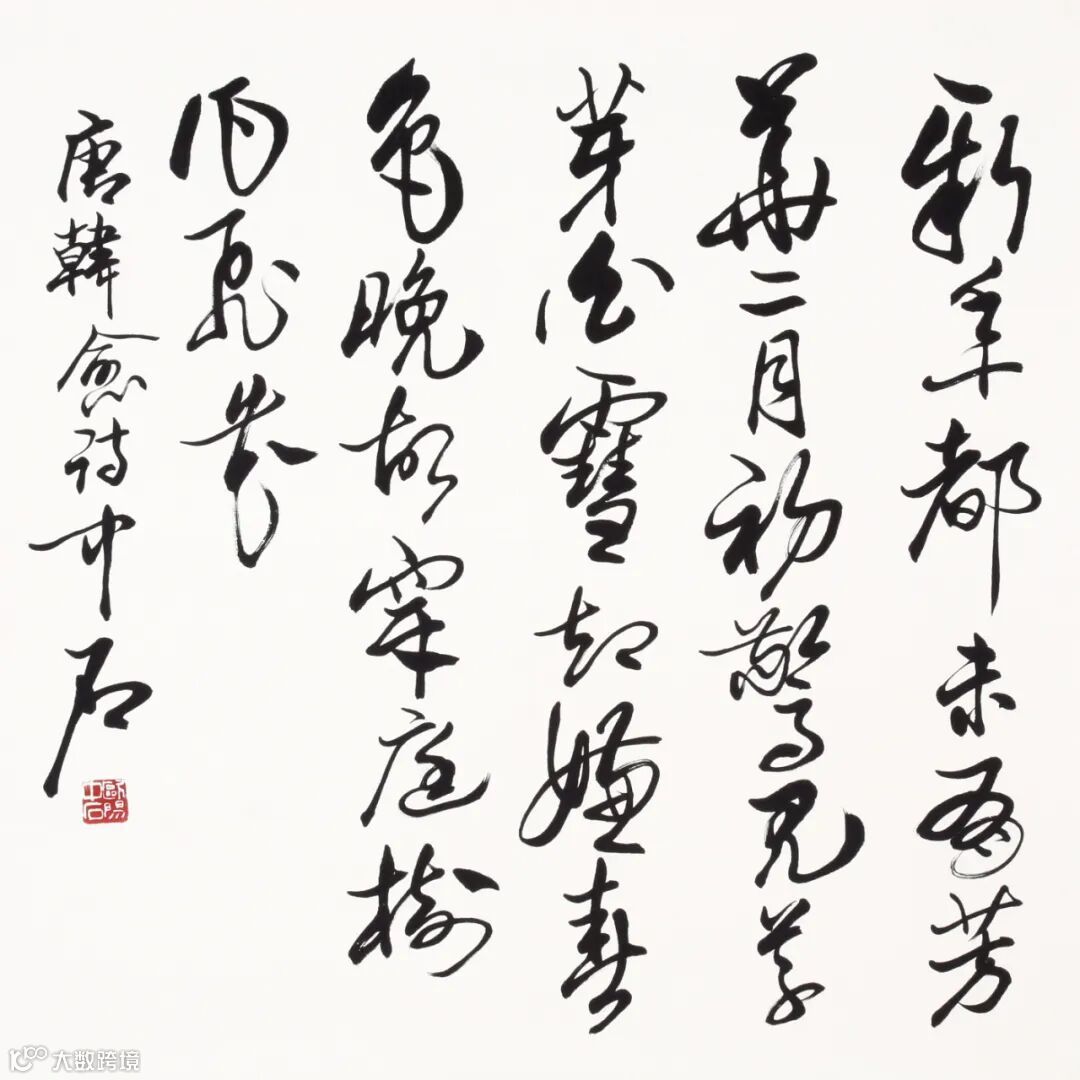 新年都未有芳
華二月初驚見草
芽白雪却嫌春
色晚故穿庭樹
作飛花
唐韓愈詩中石
歐陽中石
大数跨境